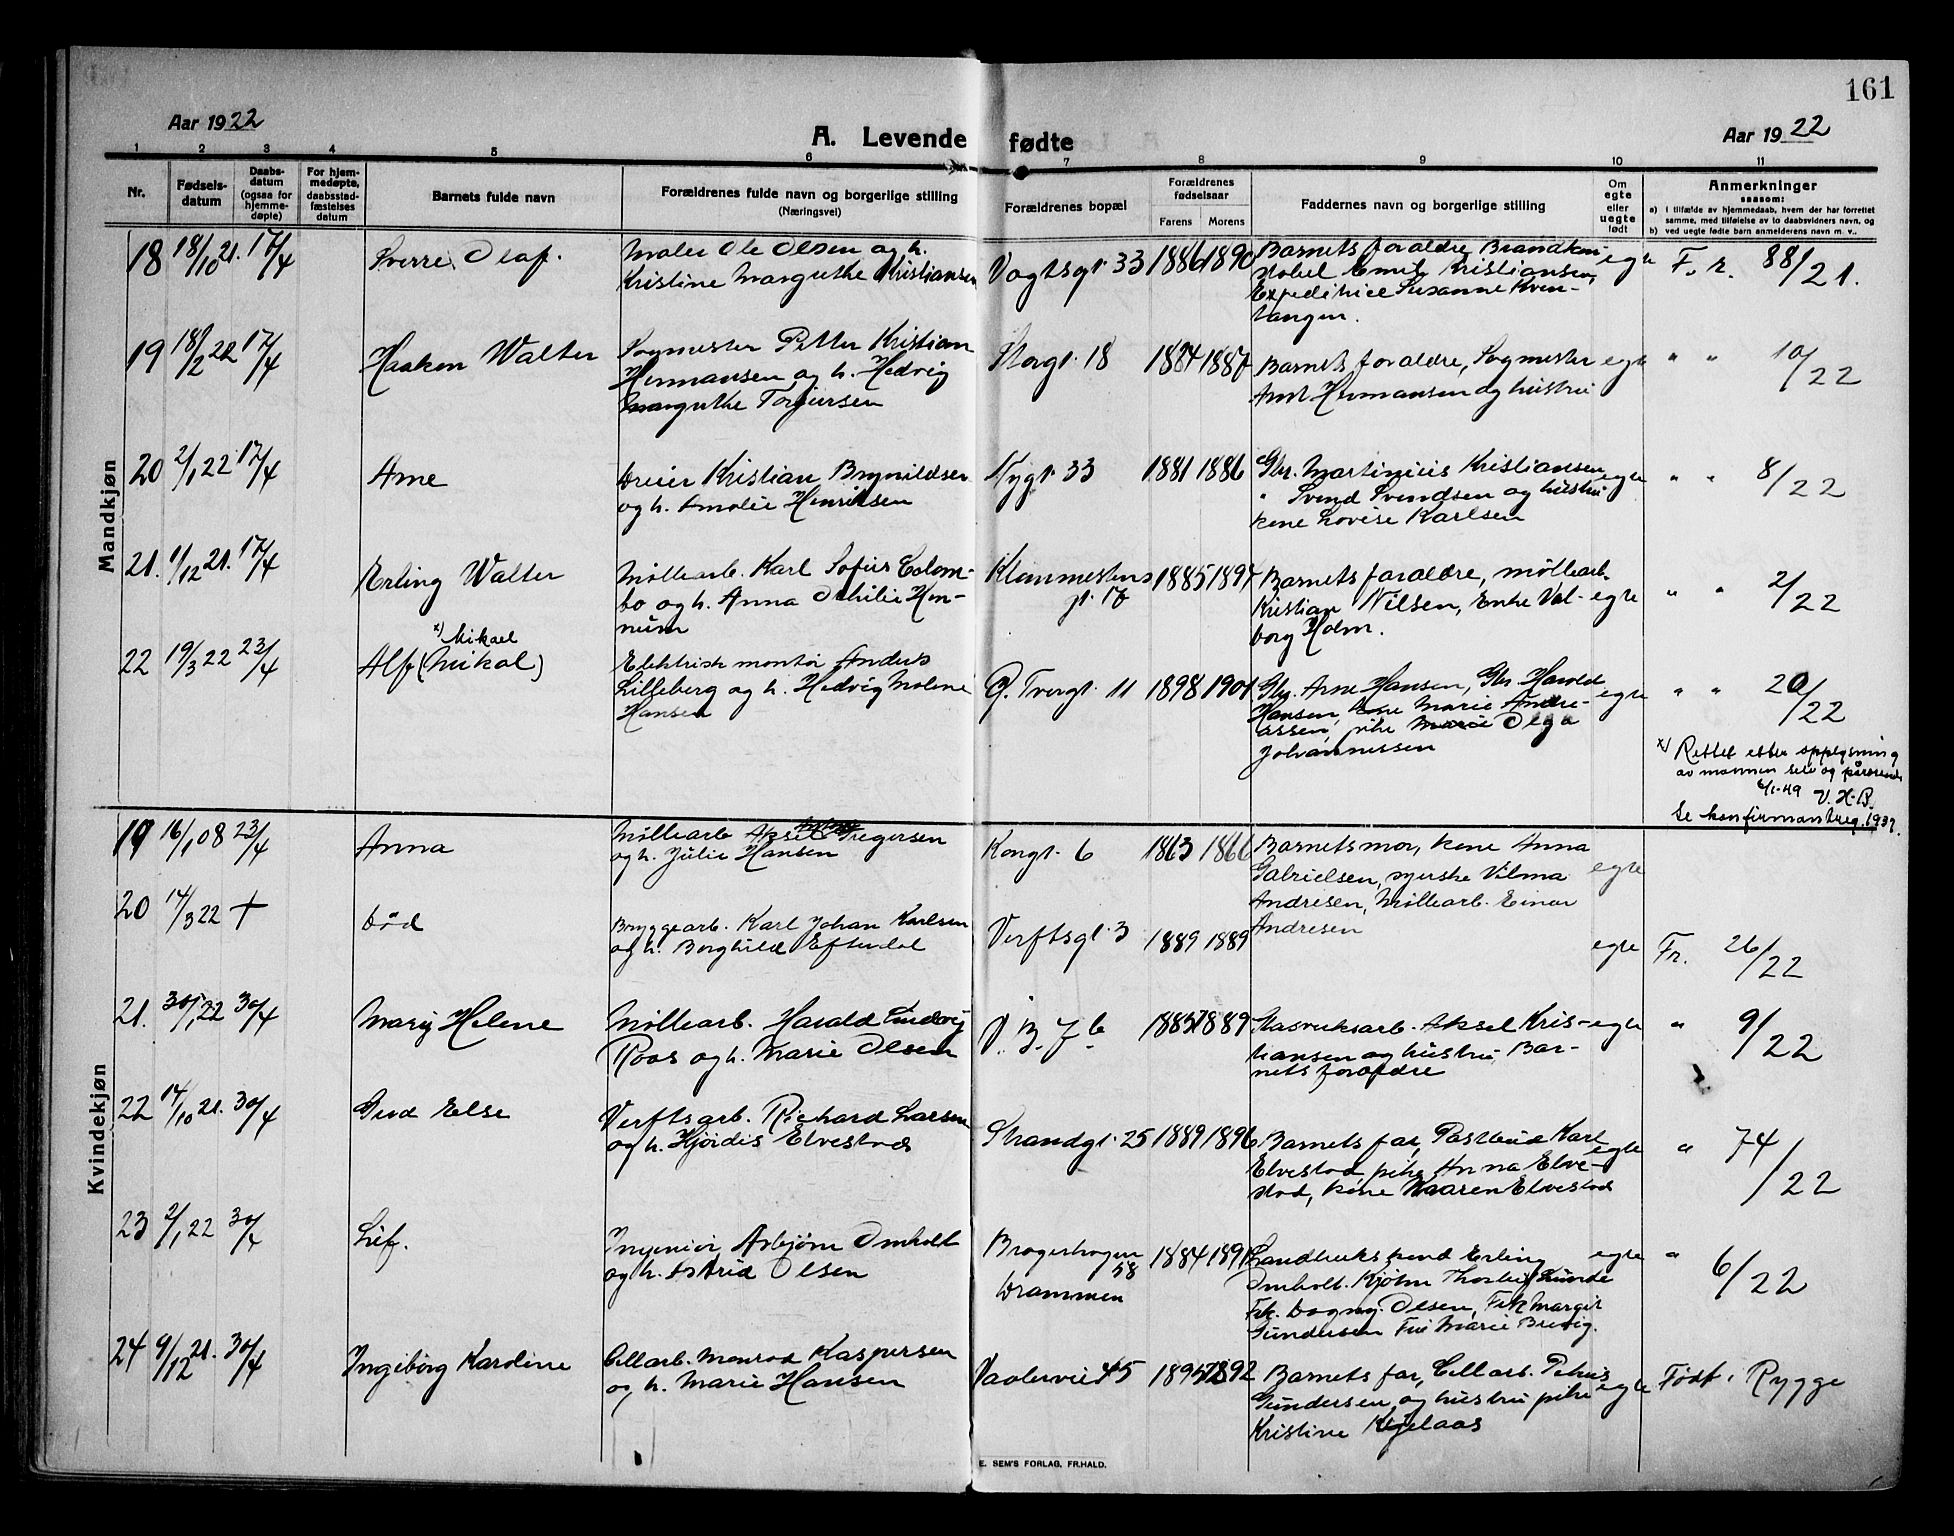 161
Aar 1922
A. Levende fødte
Aar 1922
1 2 3 4 5 6 7 8 9 10 11
Nr.
Fødsels-
datum
Daabs-
datum
(ogsaa for
hjemme-
døpte)
For hjem-
medøpte,
daabsstad-
fæstelses
datum
Barnets fulde navn
Forældrenes fulde navn og borgerlige stilling
(Næringsvei)
Forældrenes bopæl
Forældrenes
fødselsaar
Farens Morens
Faddernes navn og borgerlige stilling
Om
egte
eller
uegte
født
Anmerkninger
saasom:
a) I tilfælde av hjemmedaab, hvem der har forrettet
samme, med tilføielse av to daabsvidners navn, og
b) ved uegte fødte barn anmelderens navn m. v..
Mandkjøn
18 18/10 21. 17/4
Sverre Olaf.
Maler Ole Olsen og h.
Kristine Margrethe Kristiansen
Vogtsgt. 33 1886 1890
Barnets foraldre, Brandkon-
stabel Emil Kristiansen,
Expeditrice Susanne Kven-
tangen.
egte F. r. 88/21.
19 18/2 22 17/4
Haakon Walter
Sagmester Petter Kristian
Hermansen og h. Hedvig
Margrethe Torgersen
Storgt. 18 1884 1887
Barnets foraldre, Sagmester
Hermansen og hustru
egte " " 10/22
20 2/1 22 17/4
Arne
Dreier Kristian Brynildsen
og h. Amalie Henriksen
Nygt. 33 1881 1886
Gbr. Martinius Kristiansen
" Svend Svendsen og hustru
kone Lovise Karlsen
egte " " 8/22
21. 11/12 21. 17/4
Erling Walter
Møllearb. Karl Sofus Colom-
bo og h. Anna Othilie Hen-
num
gt. 1885 1894
Barnets foraldre, møllearb.
Kristian Nilsen, Enke Val-
borg Holm.
egte " " 2/22
22 19/3 22 23/4
x) Mikael
Alf (Mikal)
Elektrisk montør Anders
Lilleberg og h. Hedvig Malene
Hansen
Tvergt. 11 1898 1901
Gbr. Arne Hansen, Gbr. Harold
Hansen, kone Marie Andre-
assen, pike Olga
Johannessen
egte " " 20/22
x) Rettet etter opplysning
av mannen selv og
6/1-49 V. H. B.
Se konfirmantreg. 1937.
Kvindekjøn
19 16/1 08 23/4
Anna
Møllearb. Aksel Tregersen
og h. Julie Hansen
Kongt. 6 1863 1866
Barnets mor, kone Anna
Gabrielsen, syerske Vilma
Andresen, Møllearb. Einar
Andresen
egte
20 14/3 22 +
død
Bryggearb. Karl Johan Karlsen
og h. Borghild Eftedal
Verftsgt. 3 1889 1889
egte Fr. 26/22
21. 30/1 22 30/4
Mary Helene
Møllearb. Harald Ludvig
Roos og h. Marie Olsen
V. B. 7 b 1883 1889
Aksel Kris-
tiansen og hustru, Bar-
nets foraldre
egte " 9/22
22 14/10 21. 30/4
Gerd Else
Verftsarb. Richard Larsen
og h. Hjørdis Elvestad
Strandgt. 25 1889 1896
Barnets far, Postbud Karl
Elvestad, pike Anna Elve-
stad, kone Kaaren Elvestad
egte " 74/22
23 2/1 22 30/4
Liv.
Ingeniør Asbjørn Omholt
og h. Astrid Olsen
Bragerhagen
58
Drammen
1884 1891
Erling
Omholt. Kjøbm. Lunde
Frk. Dagny Olsen, Frk Margit
Gundersen Fru Marie Brevig.
egte " 6/22
24 9/12 21. 30/4
Ingeborg Karoline
Cellarb. Monrad Kaspersen
og h. Marie Hansen
Vaalerveien 45 1895 1892
Barnets far, Cellarb. Petrus
Gundersen og hustru pike
Kristine
egte Født i Rygge
E. SEM'S FORLAG, FR.HALD.